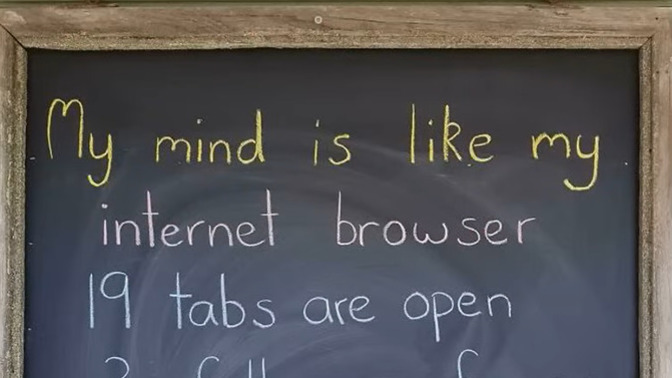 My mind is like my
internet browser
19 tabs are open